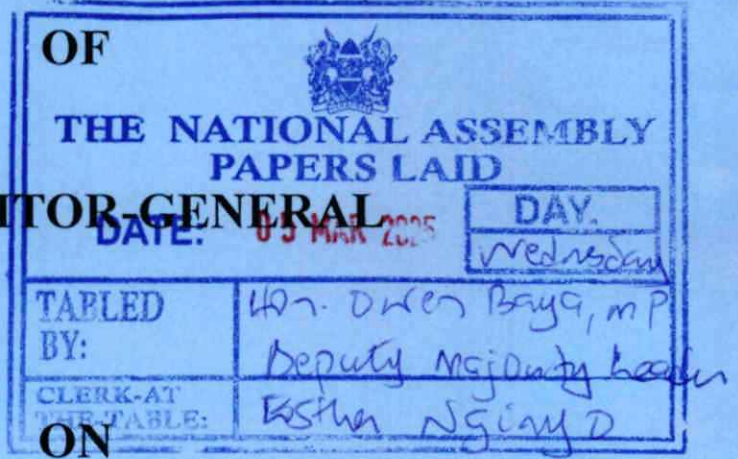 OF
THE NATIONAL ASSEMBLY
PAPERS LAID
ITOR-GENERAL
DATE: 05 MAR 2025
DAY.
Wednesday
TABLED BY:
Hon. Owen Baya, MP
Deputy Majority Leader
CLERK-AT THE TABLE:
Esther Nginyo
ON